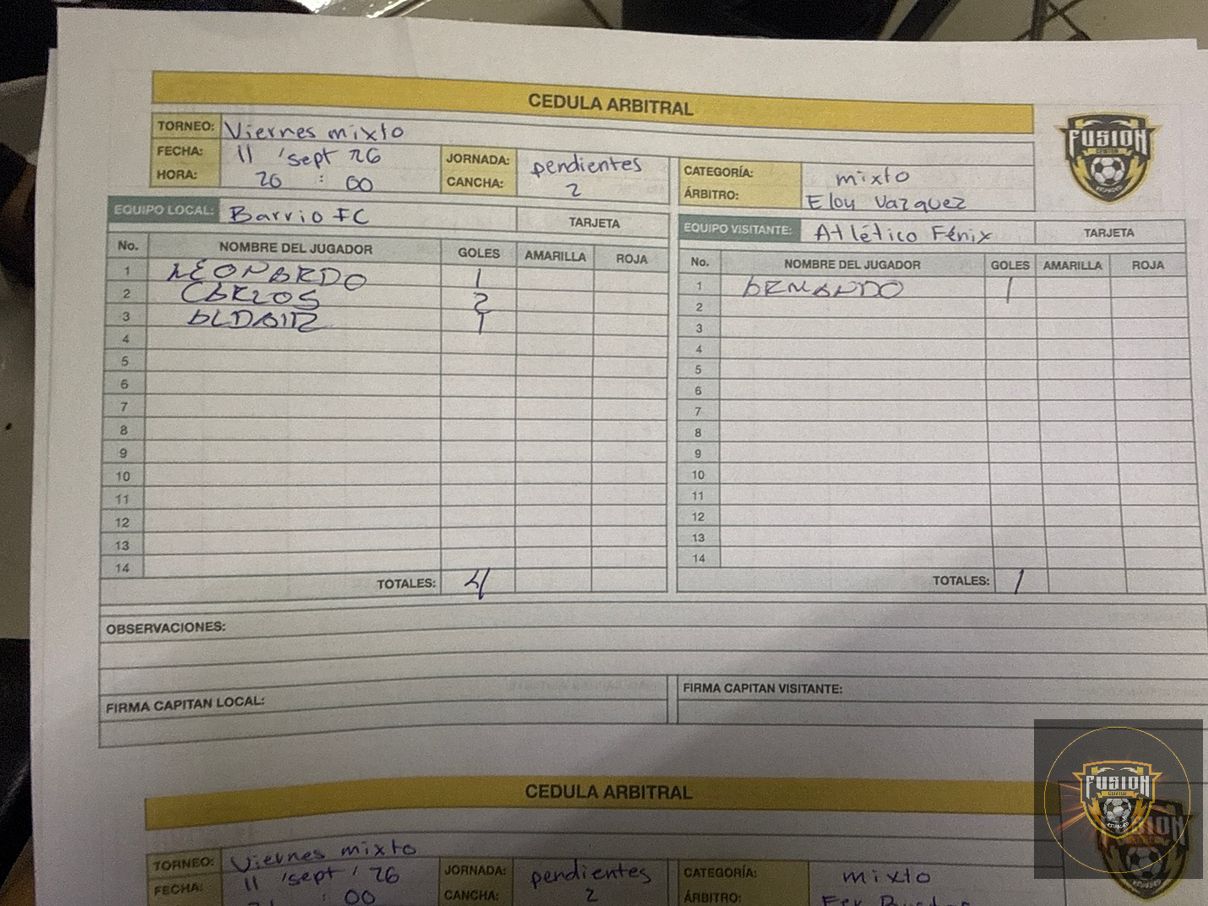 CEDULA ARBITRAL
TORNEO: Viernes mixto
FECHA: 11 'sept '26
HORA: 20 : 00
JORNADA: pendientes
CANCHA: 2
CATEGORÍA: mixto
ÁRBITRO: Eloy Vazquez
FUSION
EQUIPO LOCAL: Barrio FC TARJETA
No. NOMBRE DEL JUGADOR GOLES AMARILLA ROJA
1 LEONARDO 1
2 CARLOS 2
3 ALDAIR 1
4
5
6
7
8
9
10
11
12
13
14
TOTALES: 4
EQUIPO VISITANTE: Atlético Fénix TARJETA
No. NOMBRE DEL JUGADOR GOLES AMARILLA ROJA
1 ARMANDO 1
2
3
4
5
6
7
8
9
10
11
12
13
14
TOTALES: 1
OBSERVACIONES:
FIRMA CAPITAN LOCAL:
FIRMA CAPITAN VISITANTE:
CEDULA ARBITRAL
TORNEO: Viernes mixto
FECHA: 11 'sept '26
: 00
JORNADA: pendientes
CANCHA: 2
CATEGORÍA: mixto
ÁRBITRO:
FUSION